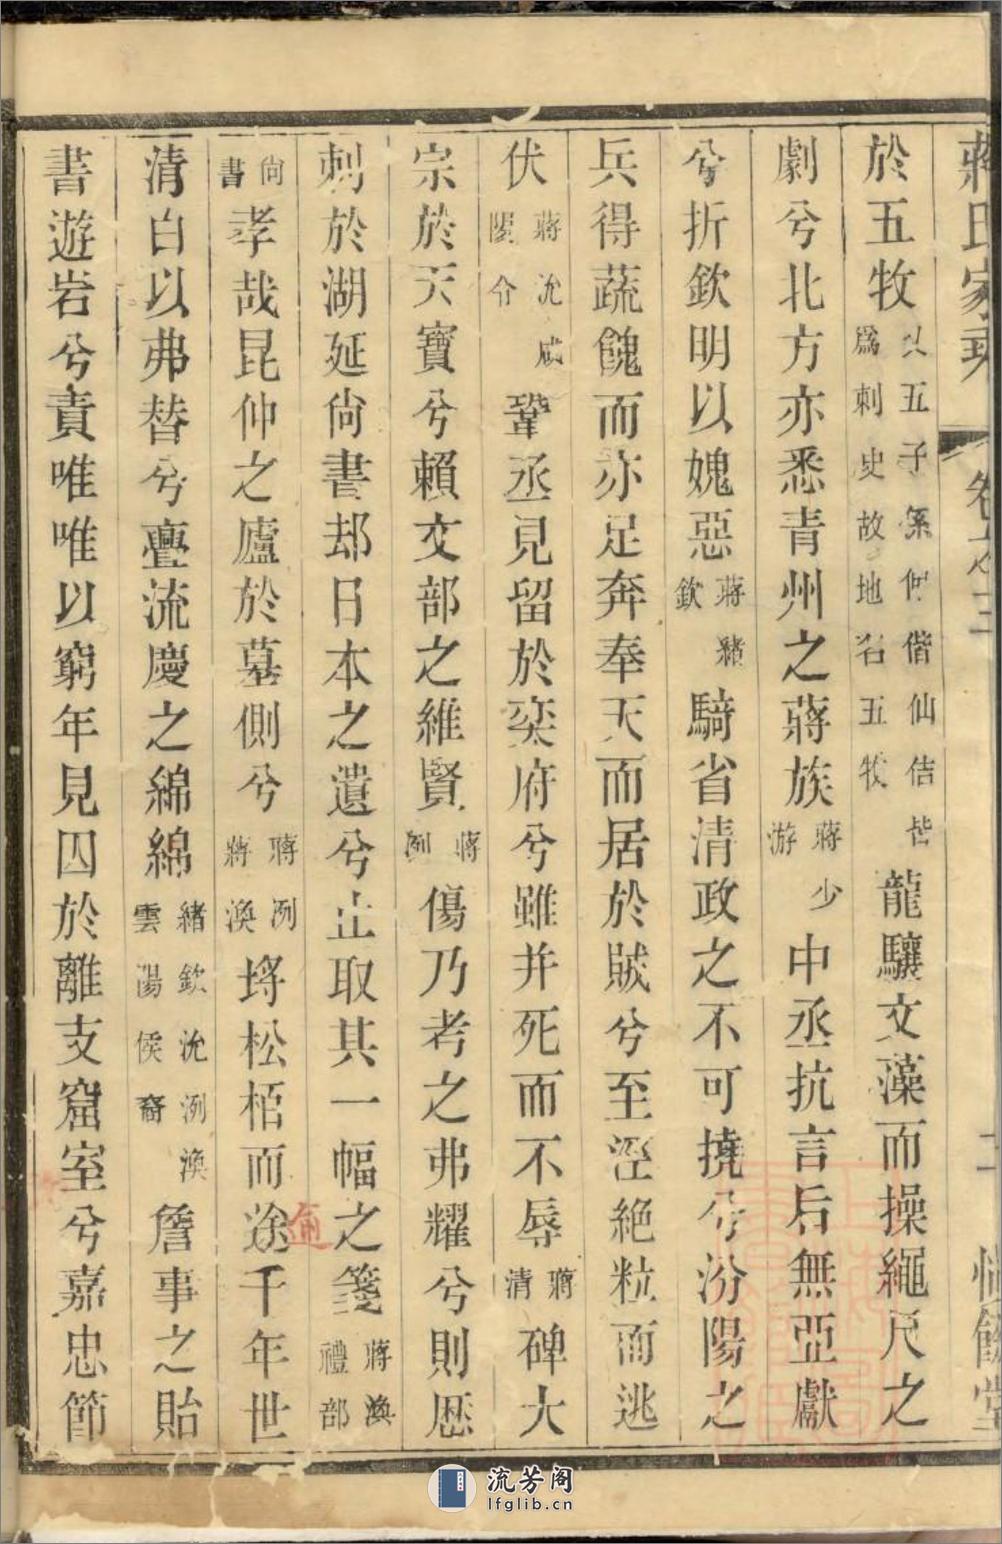 蔣氏家乘 卷之二 二
於五牧以五子係伸偕仙佶皆爲刺史故地名五牧龍驤文藻而操繩尺之
劇兮北方亦悉青州之蔣族蔣少游中丞抗言后無亞獻
兮折欽明以媿惡蔣緒欽騎省清政之不可撓兮汾陽之
兵得蔬餽而亦足奔奉天而居於賊兮至涇絕粒而逃
伏蔣沇咸陽令鞏丞見留於奕府兮雖并死而不辱蔣清碑大
宗於天寶兮賴文部之維賢蔣冽傷乃考之弗耀兮則厯
刺於湖延尙書却日本之遺兮止取其一幅之箋蔣渙禮部
尙書孝哉昆仲之廬於墓側兮蔣冽蔣渙埓松栢而途千年世
清白以弗替兮亹流慶之綿綿緒欽沇冽渙雲陽侯裔詹事之貽
書遊岩兮責唯唯以窮年見囚於離支窟室兮嘉忠節
適
流芳阁
lfglib.cn